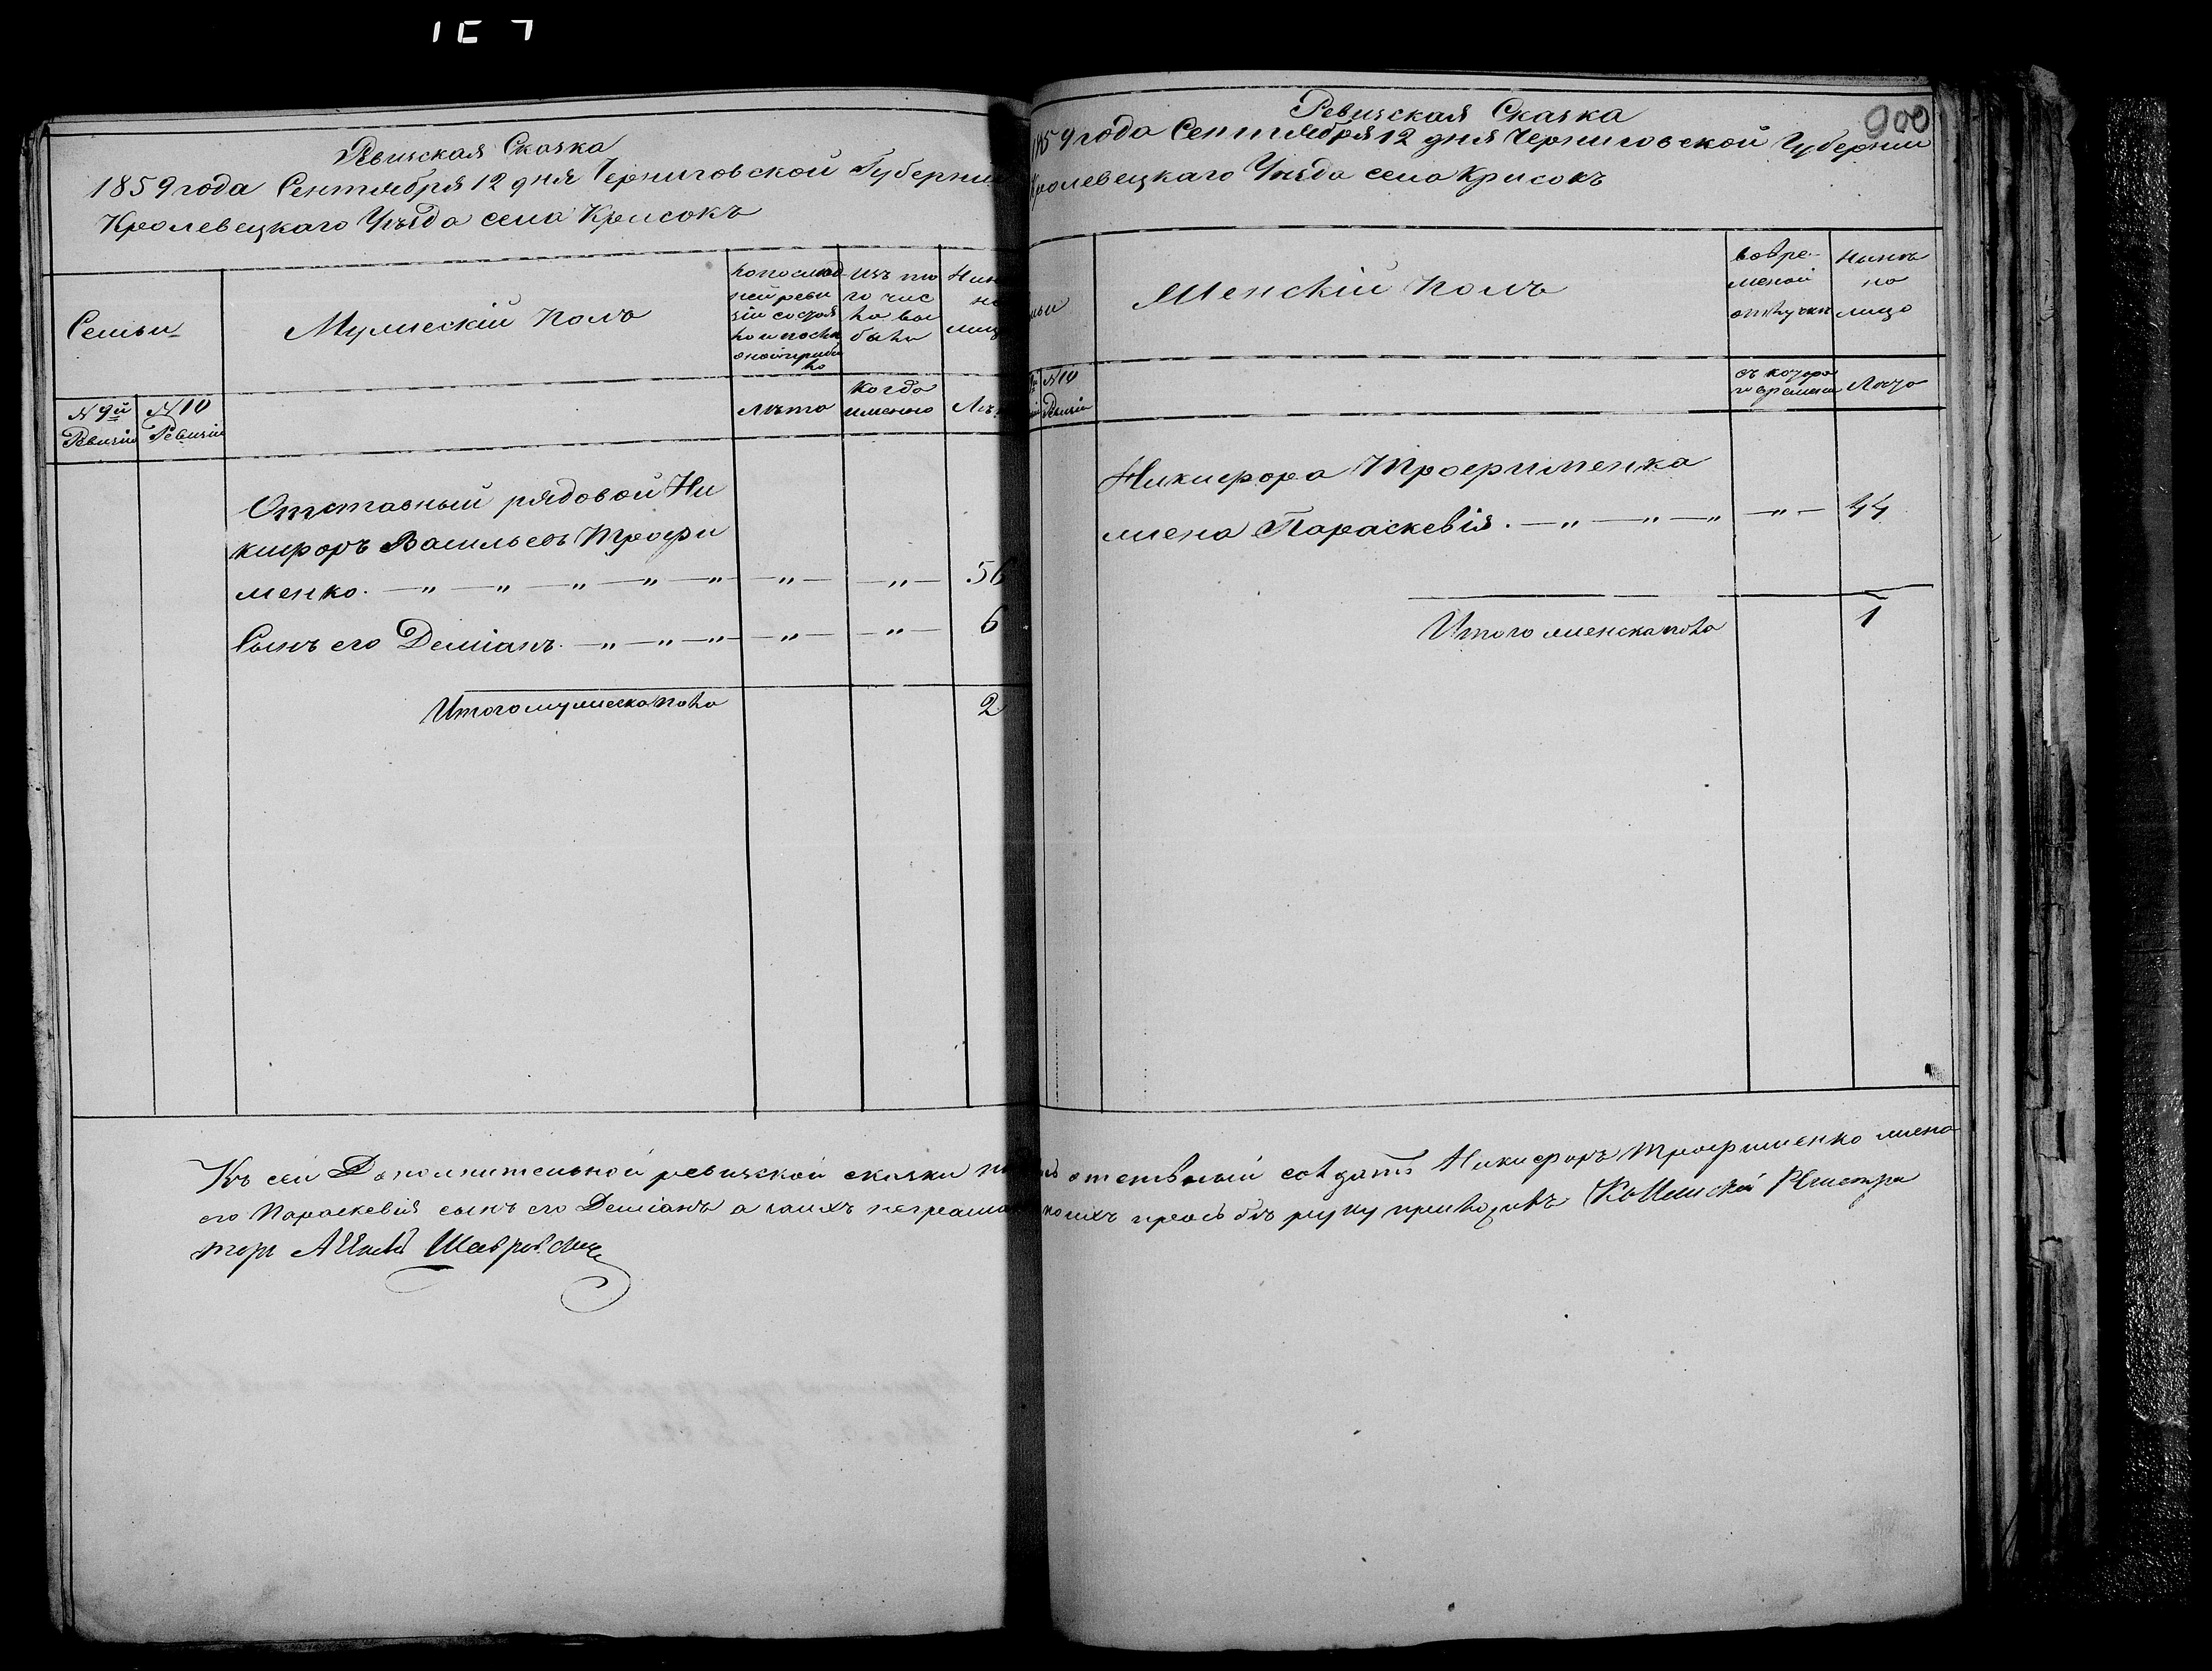 Ревизская Сказка
1859 года Сентября 12 дня Черниговской Губернии
Кролевецкаго Уѣзда села Крисокъ
Семьи
Мужескій полъ
по послѣд
ней реви
зіи состоя
ло и послѣ
оной прибы
ло
Изъ то
го чис
ла вы
было
Нын
на
лиц
№ 9й Ревизіи
№ 10 Ревизіи
лѣта
когда
имянно
Лѣт
Отставный рядовой Ни
кифоръ Васильевъ Трофи
менко. 56
Сынъ его Деміанъ. 6
Итого мужеска пола 2
900
Ревизская Сказка
1859 года Сентября 12 дня Черниговской Губернии
Кролевецкаго Уѣзда села Крисокъ
мьи
Женскій полъ
во вре-
меной
отлучки
Нынѣ
на
лицо
№ 10
Ревизіи
съ котора
го времени
Лѣта
Никифора Трофименка
жена Параскевія. 44
Итого женска пола 1
Къ сей Дополнительной ревизской сказки отставный солдатъ Никифоръ Трофименко жена
его Параскевія сынъ его Деміанъ а за ихъ неграмотныхъ прозьбѣ руку приложилъ Коллежскій Регистра
торъ